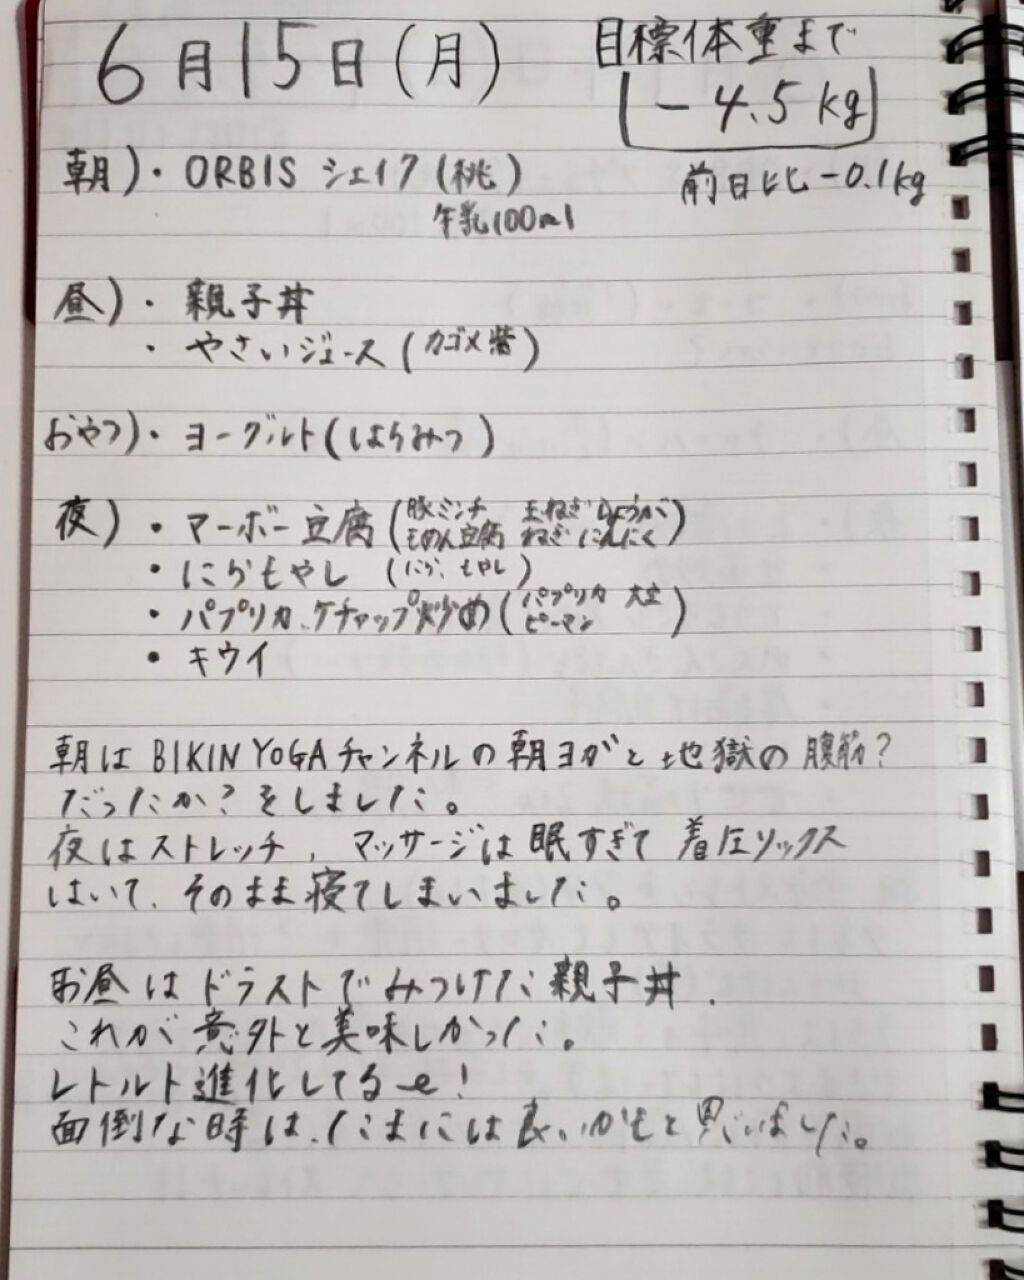 6月15日(月)
目標体重まで
-4.5kg
前日比-0.1kg
朝)・ORBIS シェイク(桃)
牛乳100ml
昼)・親子丼
・やさいジュース(カゴメ紫)
おやつ)・ヨーグルト(はちみつ)
夜)・マーボー豆腐(豚ミンチ 玉ねぎ しょうが
もめん豆腐 ねぎ にんにく)
・にらもやし (にら、もやし)
・パプリカ、ケチャップ炒め(パプリカ 大豆
ピーマン)
・キウイ
朝はBIKIN YOGAチャンネルの朝ヨガと地獄の腹筋?
だったか?をしました。
夜はストレッチ、マッサージは眠すぎて着圧ソックス
はいて、そのまま寝てしまいました。
お昼はドラストでみつけた親子丼、
これが意外と美味しかった。
レトルト進化してるー!
面倒な時は、たまには良いかもと思いました。